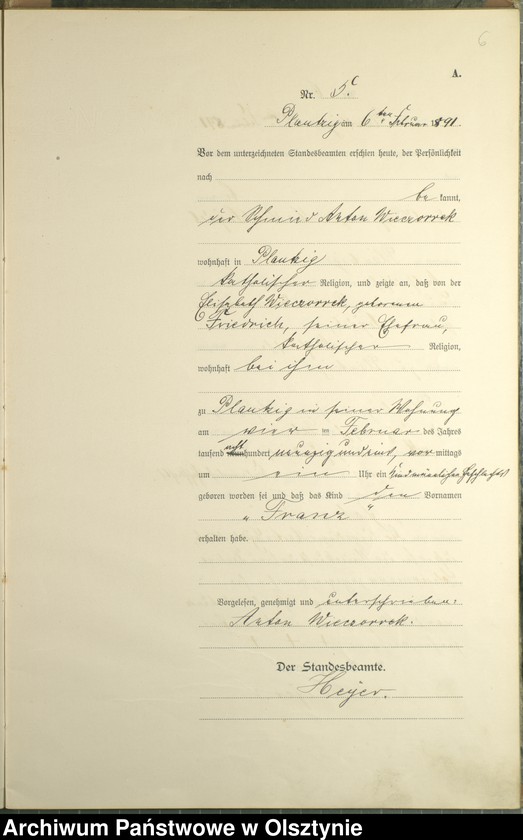 6
A.
Nr. 5.
Plautzig am 6ten Februar 1891.
Vor dem unterzeichneten Standesbeamten erschien heute, der Persönlichkeit
nach
be kannt,
der Schmied Anton Wieczorrek
wohnhaft in Plautzig
katholischer Religion, und zeigte an, daß von der
Elisabeth Wieczorrek, geborenen
Friedrich, seiner Ehefrau,
katholischer Religion,
wohnhaft bei ihm
zu Plautzig in seiner Wohnung
am vier ten Februar des Jahres
tausend acht hundert neunzig und eins, vor mittags
um ein Uhr ein Kind männlichen Geschlechts
geboren worden sei und daß das Kind den Vornamen
„Franz“
erhalten habe.
Vorgelesen, genehmigt und unterschrieben:
Anton Wieczorrek.
Der Standesbeamte.
Heyer.
Archiwum Państwowe w Olsztynie